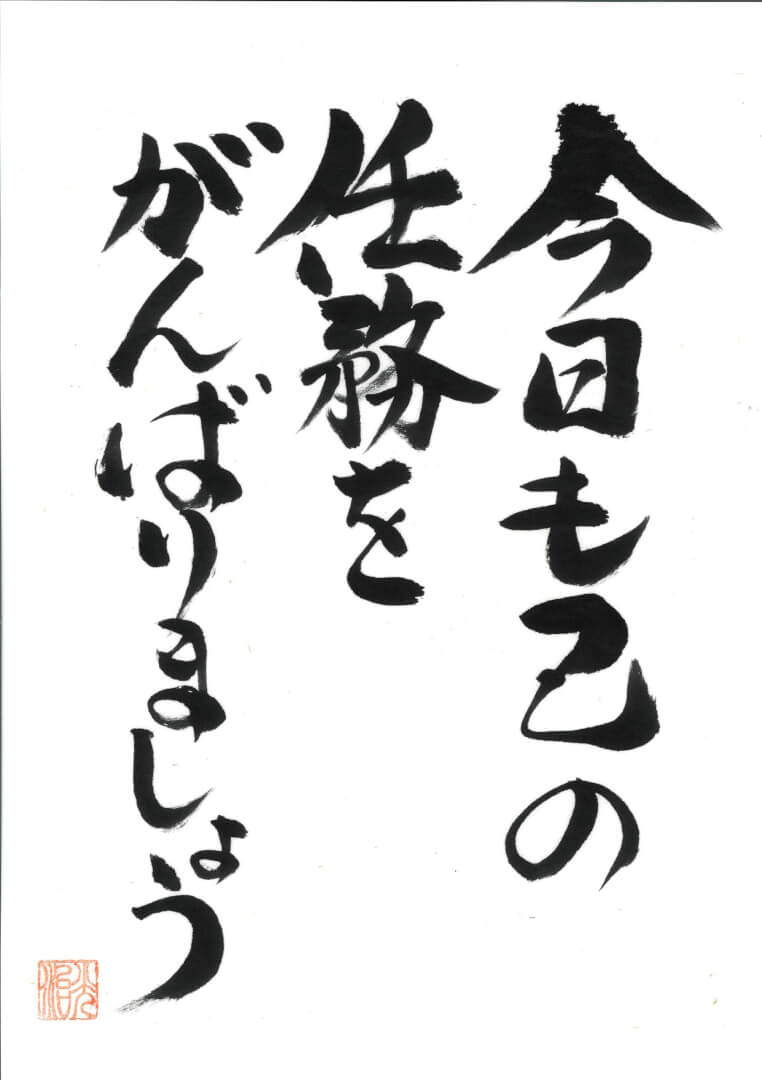 今日も己の
任務を
がんばりましょう